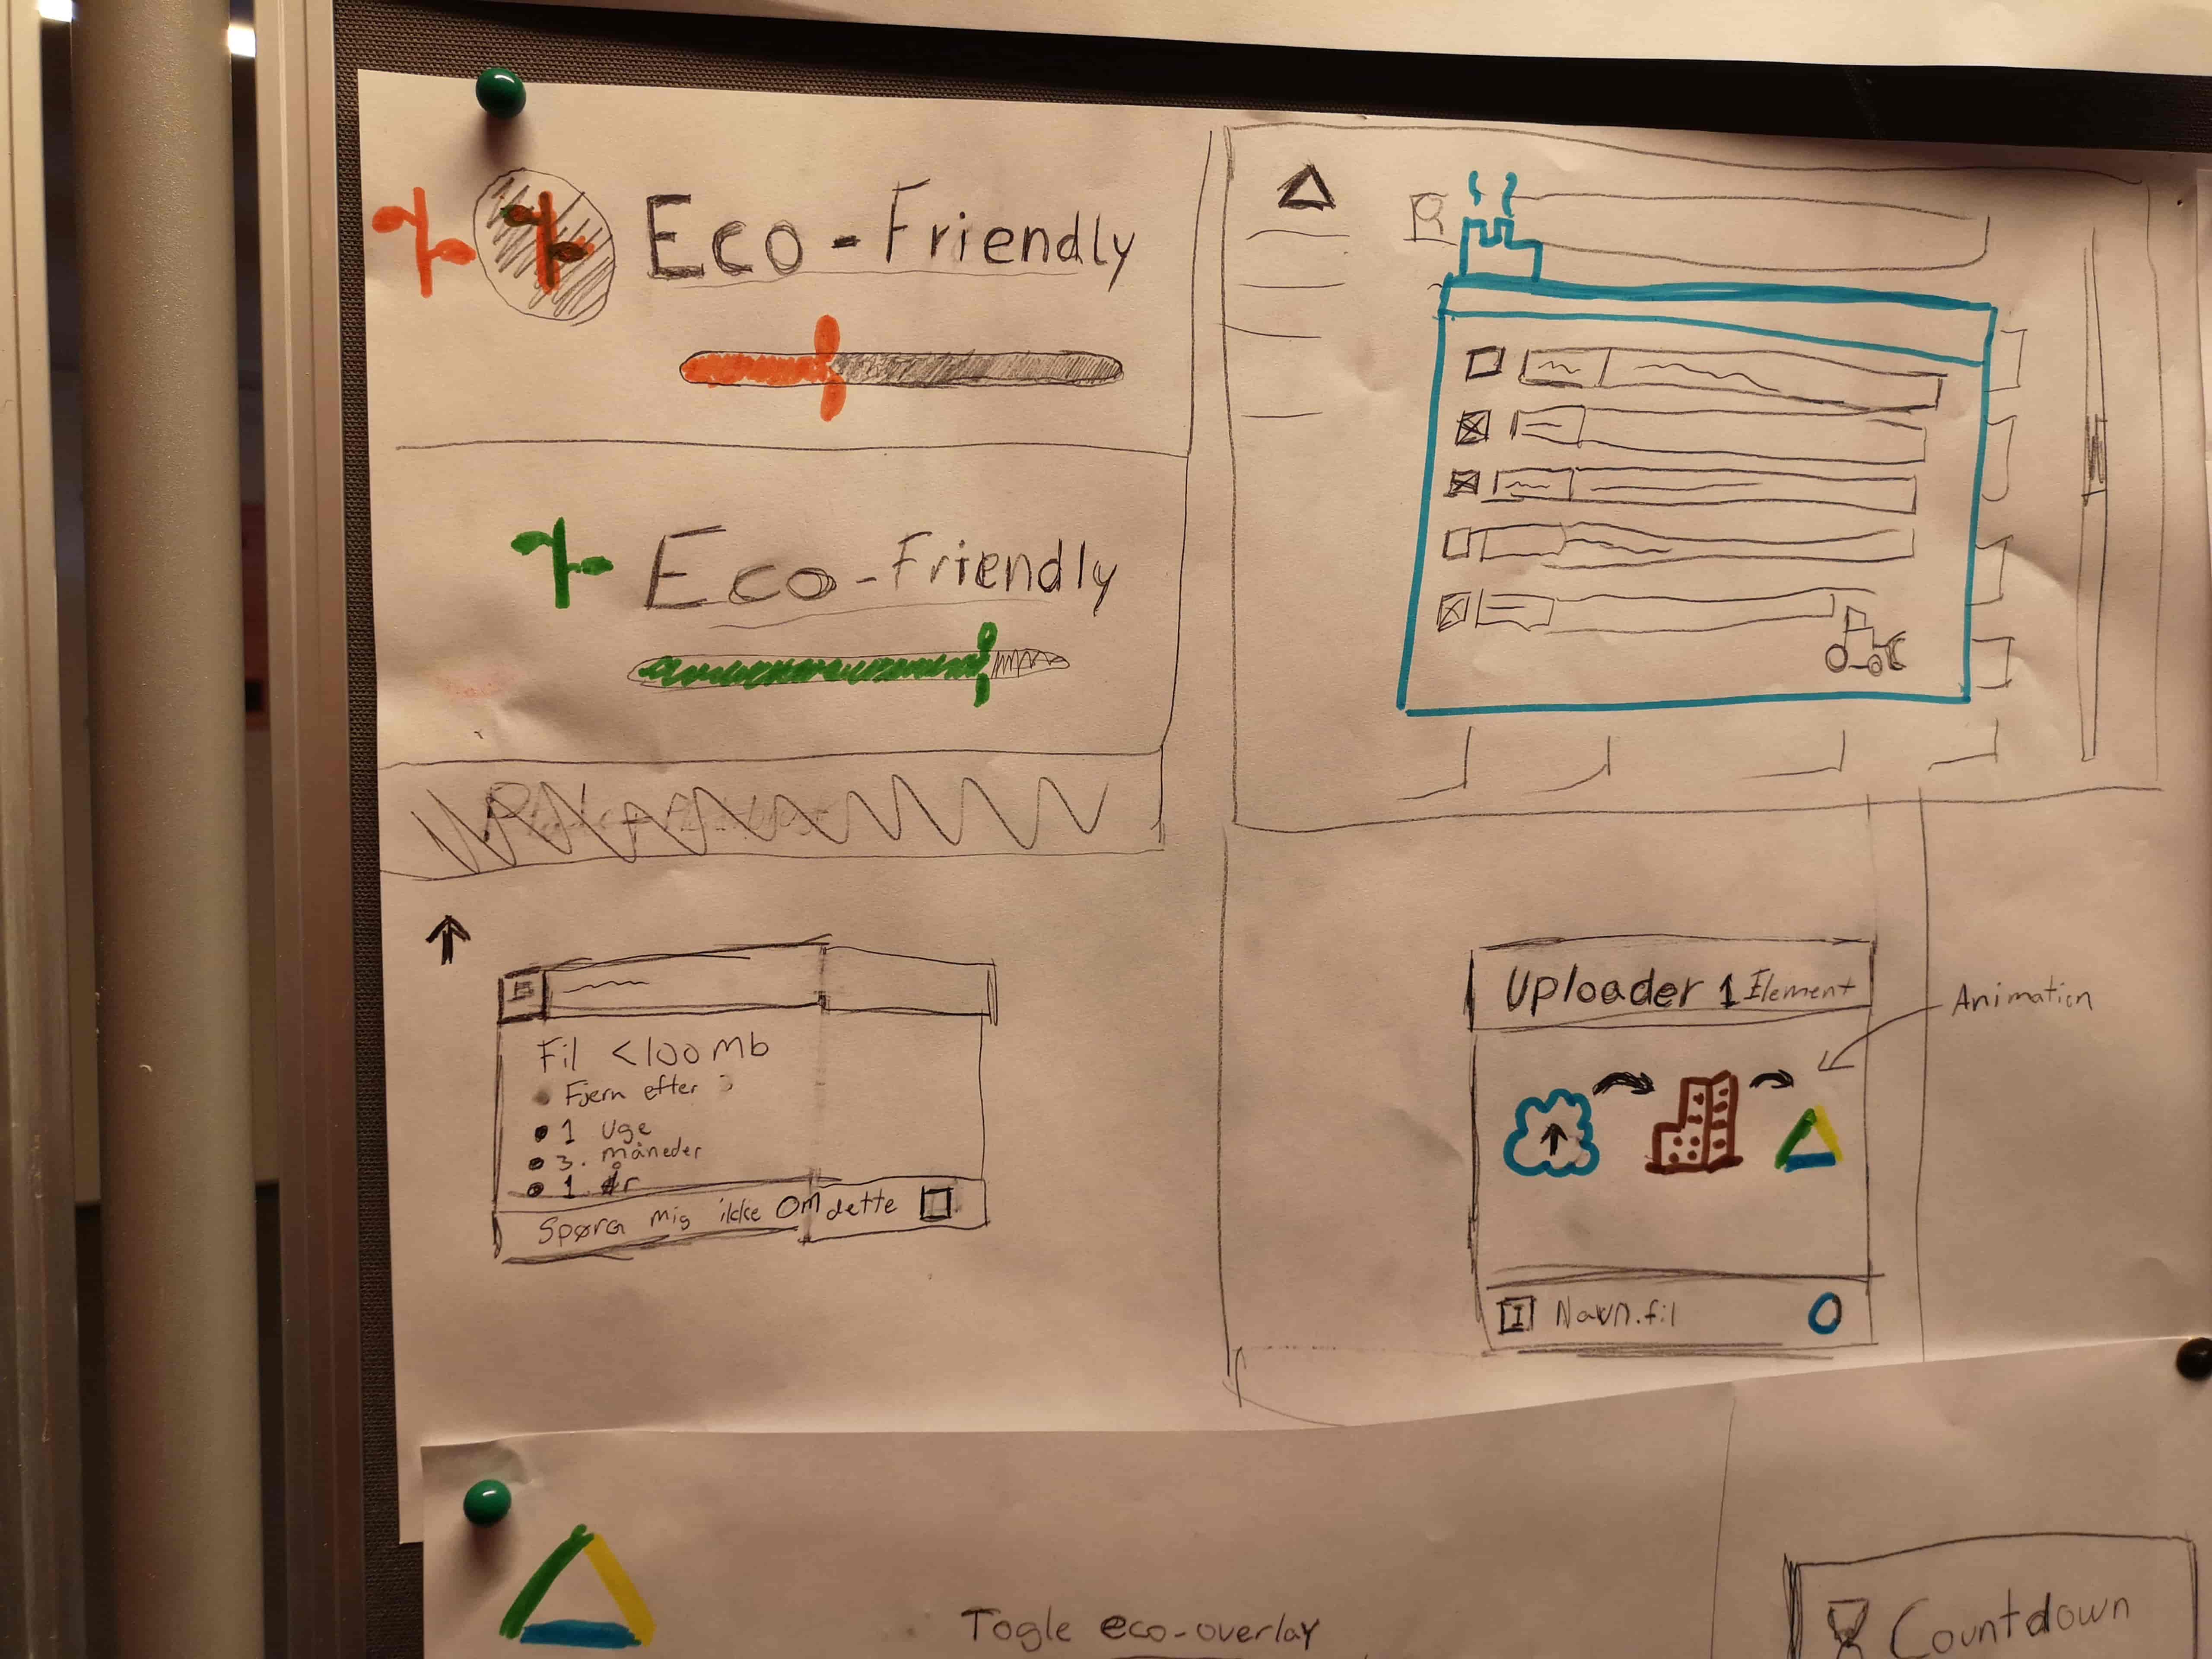 Eco-Friendly
Eco-Friendly
Fil <100 Mb
Fjern efter :
1 Uge
3. måneder
1. år
Spørg mig ikke om dette
Uploader 1 Element
Animation
Navn.fil
Togle eco-overlay
Countdown